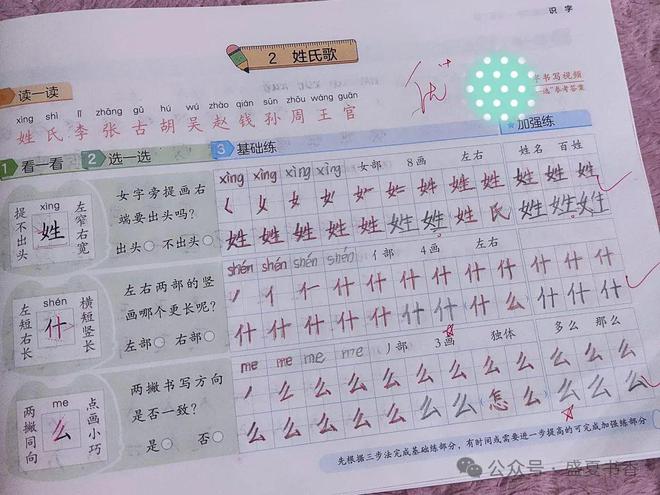 识字
2 姓氏歌
优+
字书写视频
读一读
"选一选"参考答案
xìng shì lǐ zhāng gǔ hú wú zhào qián sūn zhōu wáng guān
姓 氏 李 张 古 胡 吴 赵 钱 孙 周 王 官
1 看一看 2 选一选 3 基础练 加强练
提不出头 xìng 姓 左窄右宽
女字旁提画右端要出头吗?
出头 不出头
xìng xìng xìng xìng 女部 8画 左右 姓名 百姓
く 女 女 女 女 姓 姓 姓 姓 姓 姓 姓
姓 姓 姓 姓 姓 姓 姓 姓 氏 姓 姓 姓
左短右长 shén 什 横短竖长
左右两部的竖画哪个更长呢?
左部 右部
shén shén shén shén 亻部 4画 左右
丿 亻 什 什 什 什 什 什 什 什 什
什 什 什 什 什 什 什 什 么 什 什 什
两撇同向 me 么 点画小巧
两撇书写方向是否一致?
是 否
me me me me 丿部 3画 独体 多么 那么
丿 么 么 么 么 么 么 么 么 么 么
么 么 么 么 么 么 么 怎 么 么 么 么
先根据三步法完成基础练部分,有时间或需要进一步提高的可完成加强练部分
公众号·盛夏书香